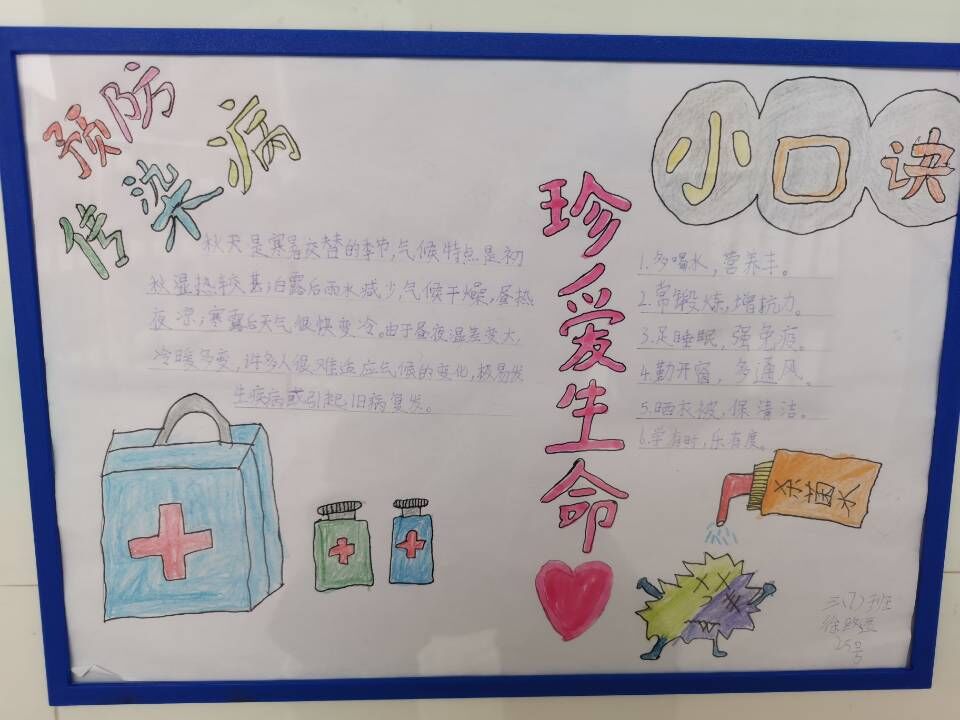 预防
传染病
秋天是寒暑交替的季节,气候特点是初
秋湿热较甚;白露后雨水减少,气候干燥,昼热
夜凉;寒露后天气很快变冷。由于昼夜温差变大,
冷暖多变,许多人很难适应气候的变化,极易发
生疾病或引起旧病复发。
珍爱生命
小口诀
1.多喝水,营养丰。
2.常锻炼,增抗力。
3.足睡眠,强免疫。
4.勤开窗,多通风。
5.晒衣被,保清洁。
6.学有时,乐有度。
杀菌水
三(7)班
徐
25号